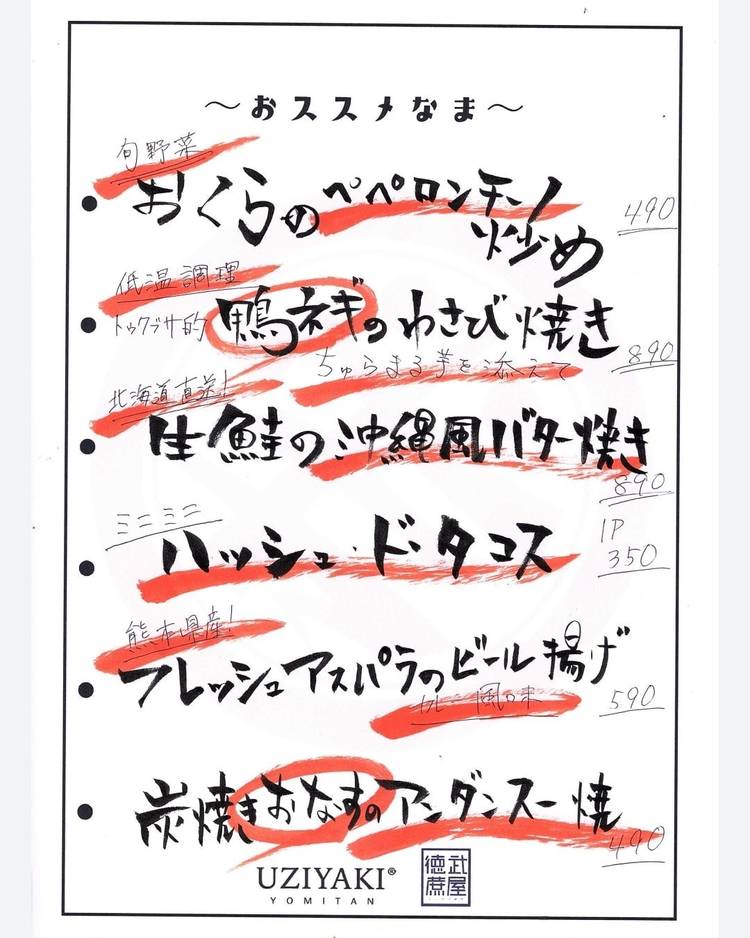 ～おススメなま～
旬野菜
おくらのペペロンチーノ
炒め
490
低温調理
トゥクブサ的 鴨ネギのわさび焼き
890
ちゅらまる芋を添えて
北海道直送！
生鮭の沖縄風バター焼き
890
ミニミニ
ハッシュ・ド・タコス
1P
350
熊本県産！
フレッシュアスパラのビール揚げ
カレー風味
590
炭焼きおなすのアンダンスー焼
490
UZIYAKI®
YOMITAN
武屋
徳蔗